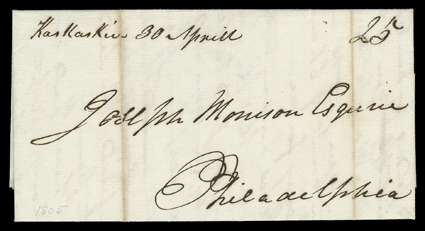 Kaskaskia 30 Aprill 25
Joseph Morrison Esquire
Philadelphia
1805